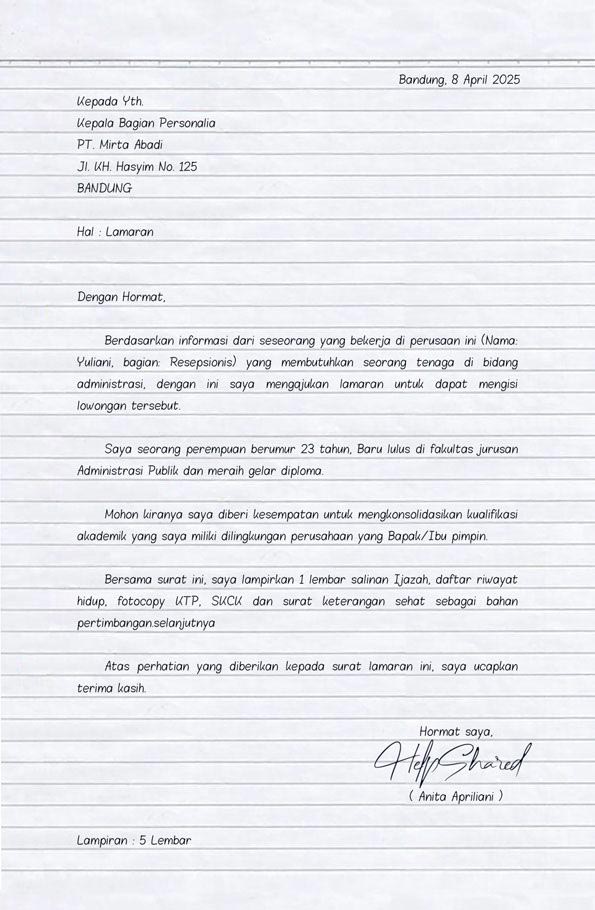 Bandung, 8 April 2025
Kepada Yth.
Kepala Bagian Personalia
PT. Mirta Abadi
Jl. KH. Hasyim No. 125
BANDUNG
Hal : Lamaran
Dengan Hormat,
Berdasarkan informasi dari seseorang yang bekerja di perusaan ini (Nama:
Yuliani, bagian: Resepsionis) yang membutuhkan seorang tenaga di bidang
administrasi, dengan ini saya mengajukan lamaran untuk dapat mengisi
lowongan tersebut.
Saya seorang perempuan berumur 23 tahun, Baru lulus di fakultas jurusan
Administrasi Publik dan meraih gelar diploma.
Mohon kiranya saya diberi kesempatan untuk mengkonsolidasikan kualifikasi
akademik yang saya miliki dilingkungan perusahaan yang Bapak/Ibu pimpin.
Bersama surat ini, saya lampirkan 1 lembar salinan Ijazah, daftar riwayat
hidup, fotocopy KTP, SKCK dan surat keterangan sehat sebagai bahan
pertimbangan.selanjutnya
Atas perhatian yang diberikan kepada surat lamaran ini, saya ucapkan
terima kasih.
Hormat saya,
HelpShared
( Anita Apriliani )
Lampiran : 5 Lembar